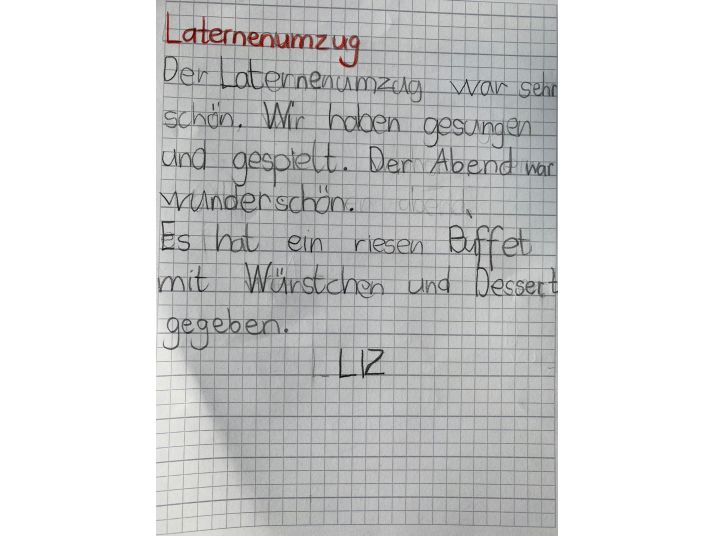 Laternenumzug
Der Laternenumzug war sehr
schön. Wir haben gesungen
und gespielt. Der Abend war
wunderschön.
Es hat ein riesen Buffet
mit Würstchen und Dessert
gegeben.
LIZ